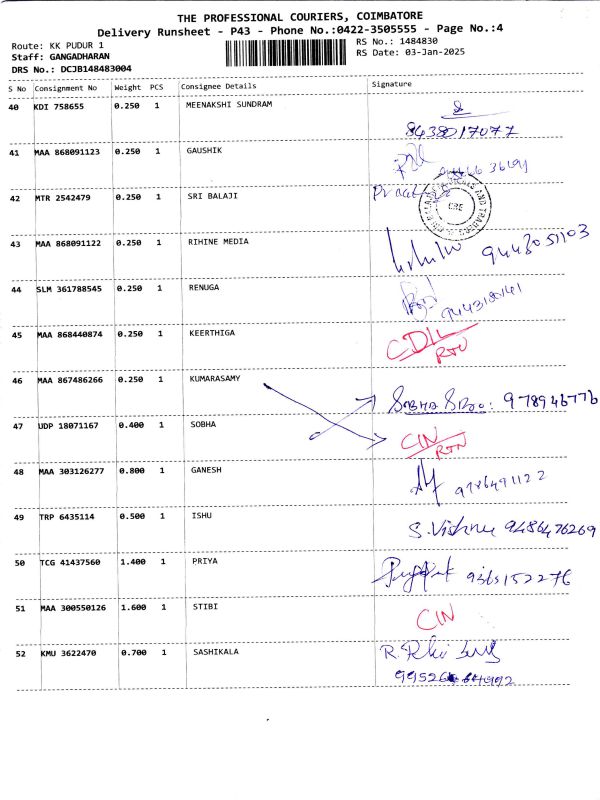 THE PROFESSIONAL COURIERS, COIMBATORE
Delivery Runsheet - P43 - Phone No.:0422-3505555 - Page No.:4
Route: KK PUDUR 1
RS No.: 1484830
Staff: GANGADHARAN
RS Date: 03-Jan-2025
DRS No.: DCJB148483004
S No Consignment No Weight PCS Consignee Details Signature
40 KDI 758655 0.250 1 MEENAKSHI SUNDRAM
8438017077
41 MAA 868091123 0.250 1 GAUSHIK
42 MTR 2542479 0.250 1 SRI BALAJI
CBE
43 MAA 868091122 0.250 1 RIHINE MEDIA
9443051103
44 SLM 361788545 0.250 1 RENUGA
9443180141
45 MAA 868440874 0.250 1 KEERTHIGA
CDIL
RTN
46 MAA 867486266 0.250 1 KUMARASAMY
978946776
47 UDP 18071167 0.400 1 SOBHA
CIN
RTN
48 MAA 303126277 0.800 1 GANESH
9786491122
49 TRP 6435114 0.500 1 ISHU
S. Vishnu 9486476269
50 TCG 41437560 1.400 1 PRIYA
9365152276
51 MAA 300550126 1.600 1 STIBI
CIN
52 KMU 3622470 0.700 1 SASHIKALA